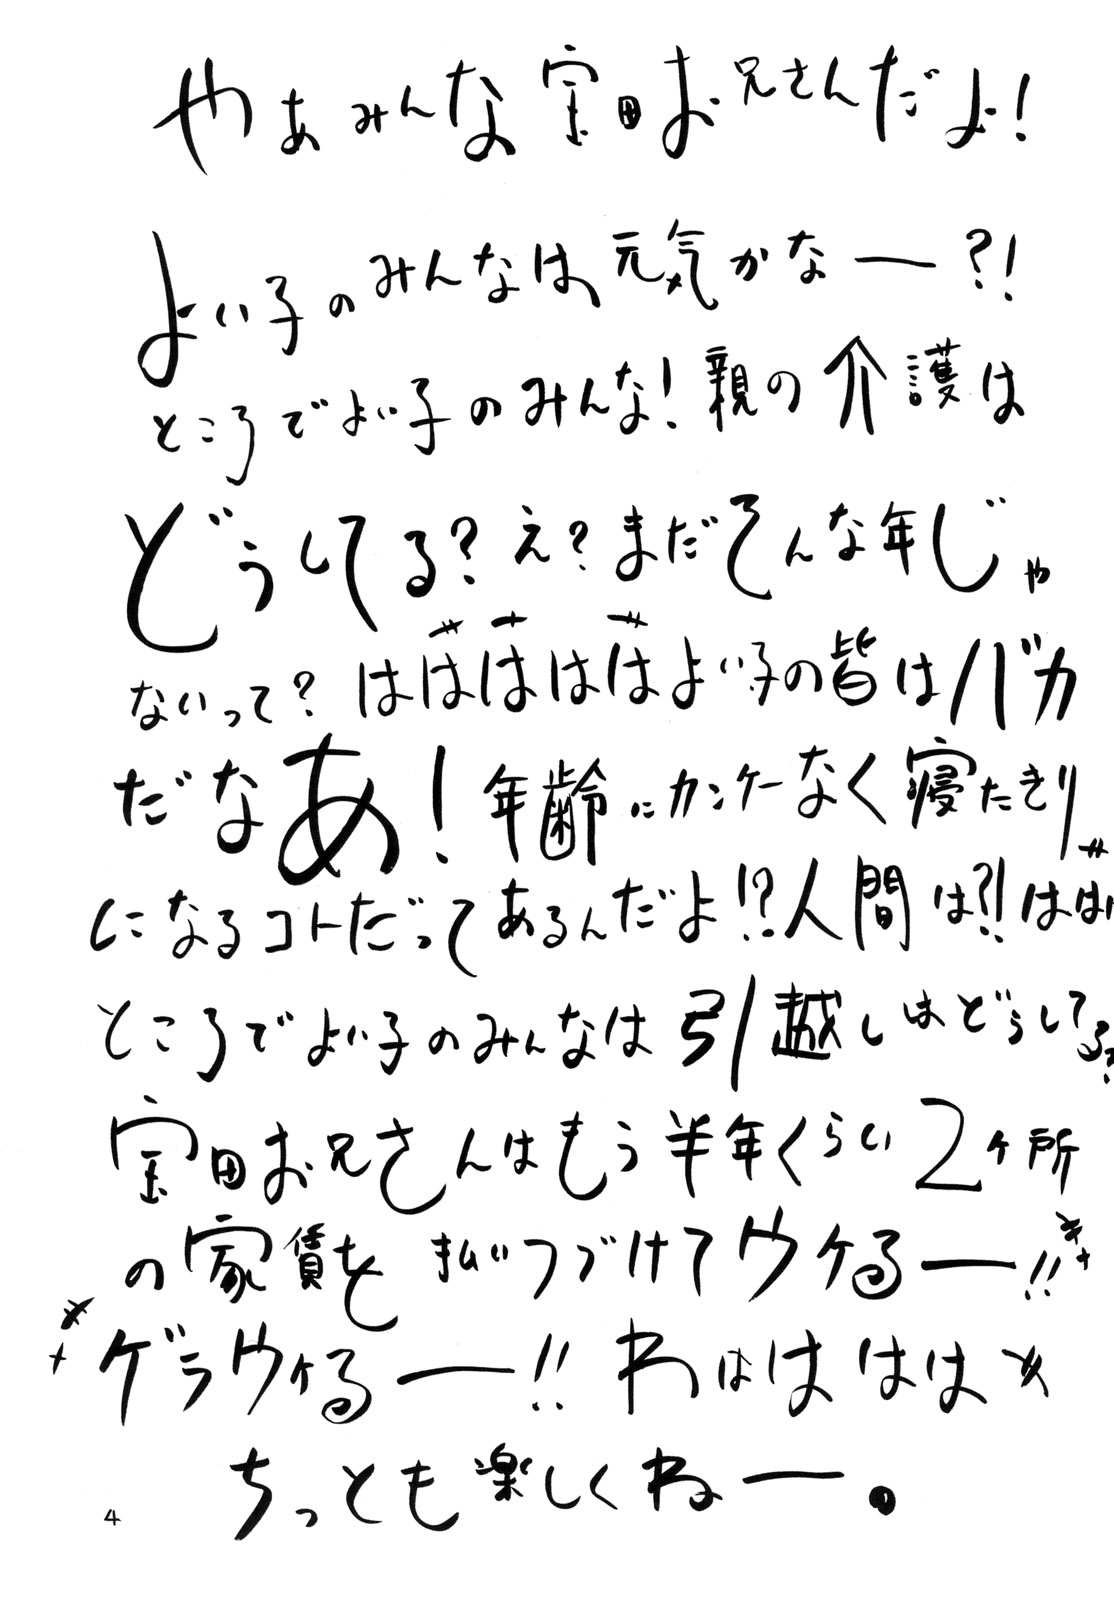 やぁみんな宝田お兄さんだよ!
よい子のみんなは、元気かなー?!
ところでよい子のみんな!親の介護は
どうしてる?え?まだそんな年じゃ
ないって?はははははよい子の皆はバカ
だなあ!年齢にカンケーなく寝たきり
になるコトだってあるんだよ!?人間は?!はは
ところでよい子のみんなは引越しはどうしてる?
宝田お兄さんはもう半年くらい2ヶ所
の家賃を払いつづけてウケるー!!
ゲラウケるー!!わはははは
ちっとも楽しくねー。
4